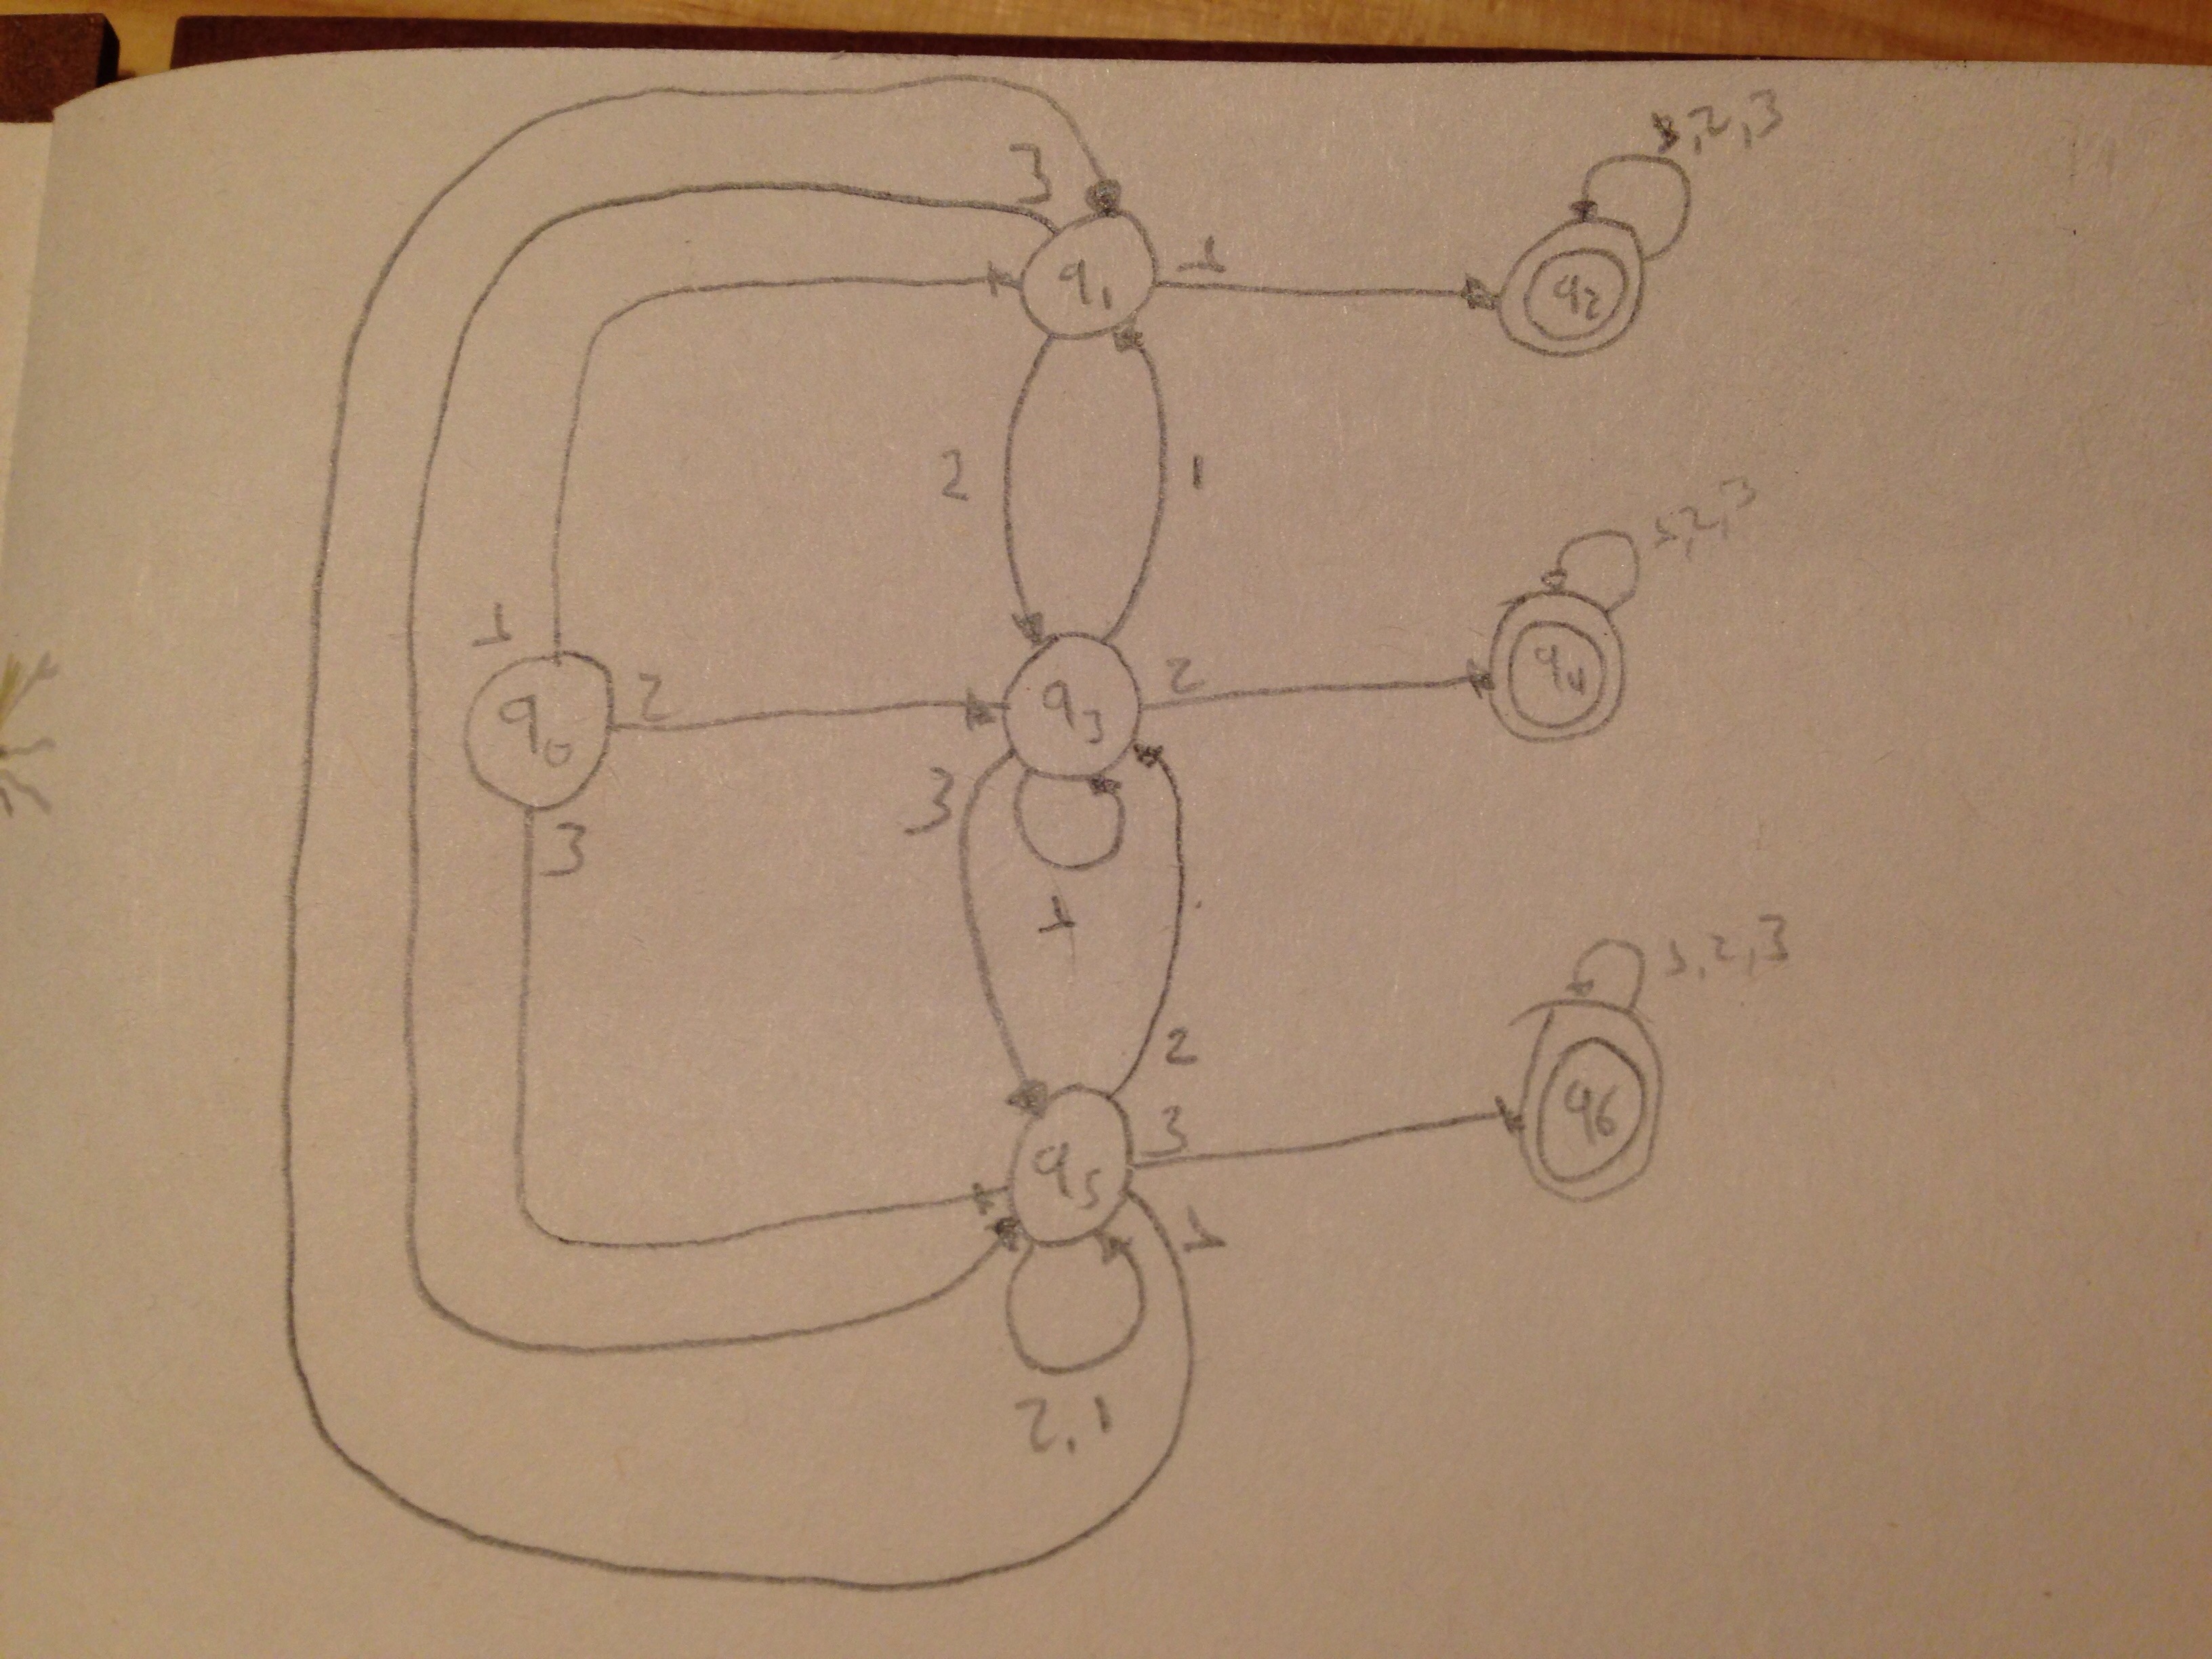 1,2,3
3
q1 1
q2
2 1
1,2,3
1
q0 2
q3 2
q4
3
3
1
1,2,3
2
3
q5
q6
1
2,1